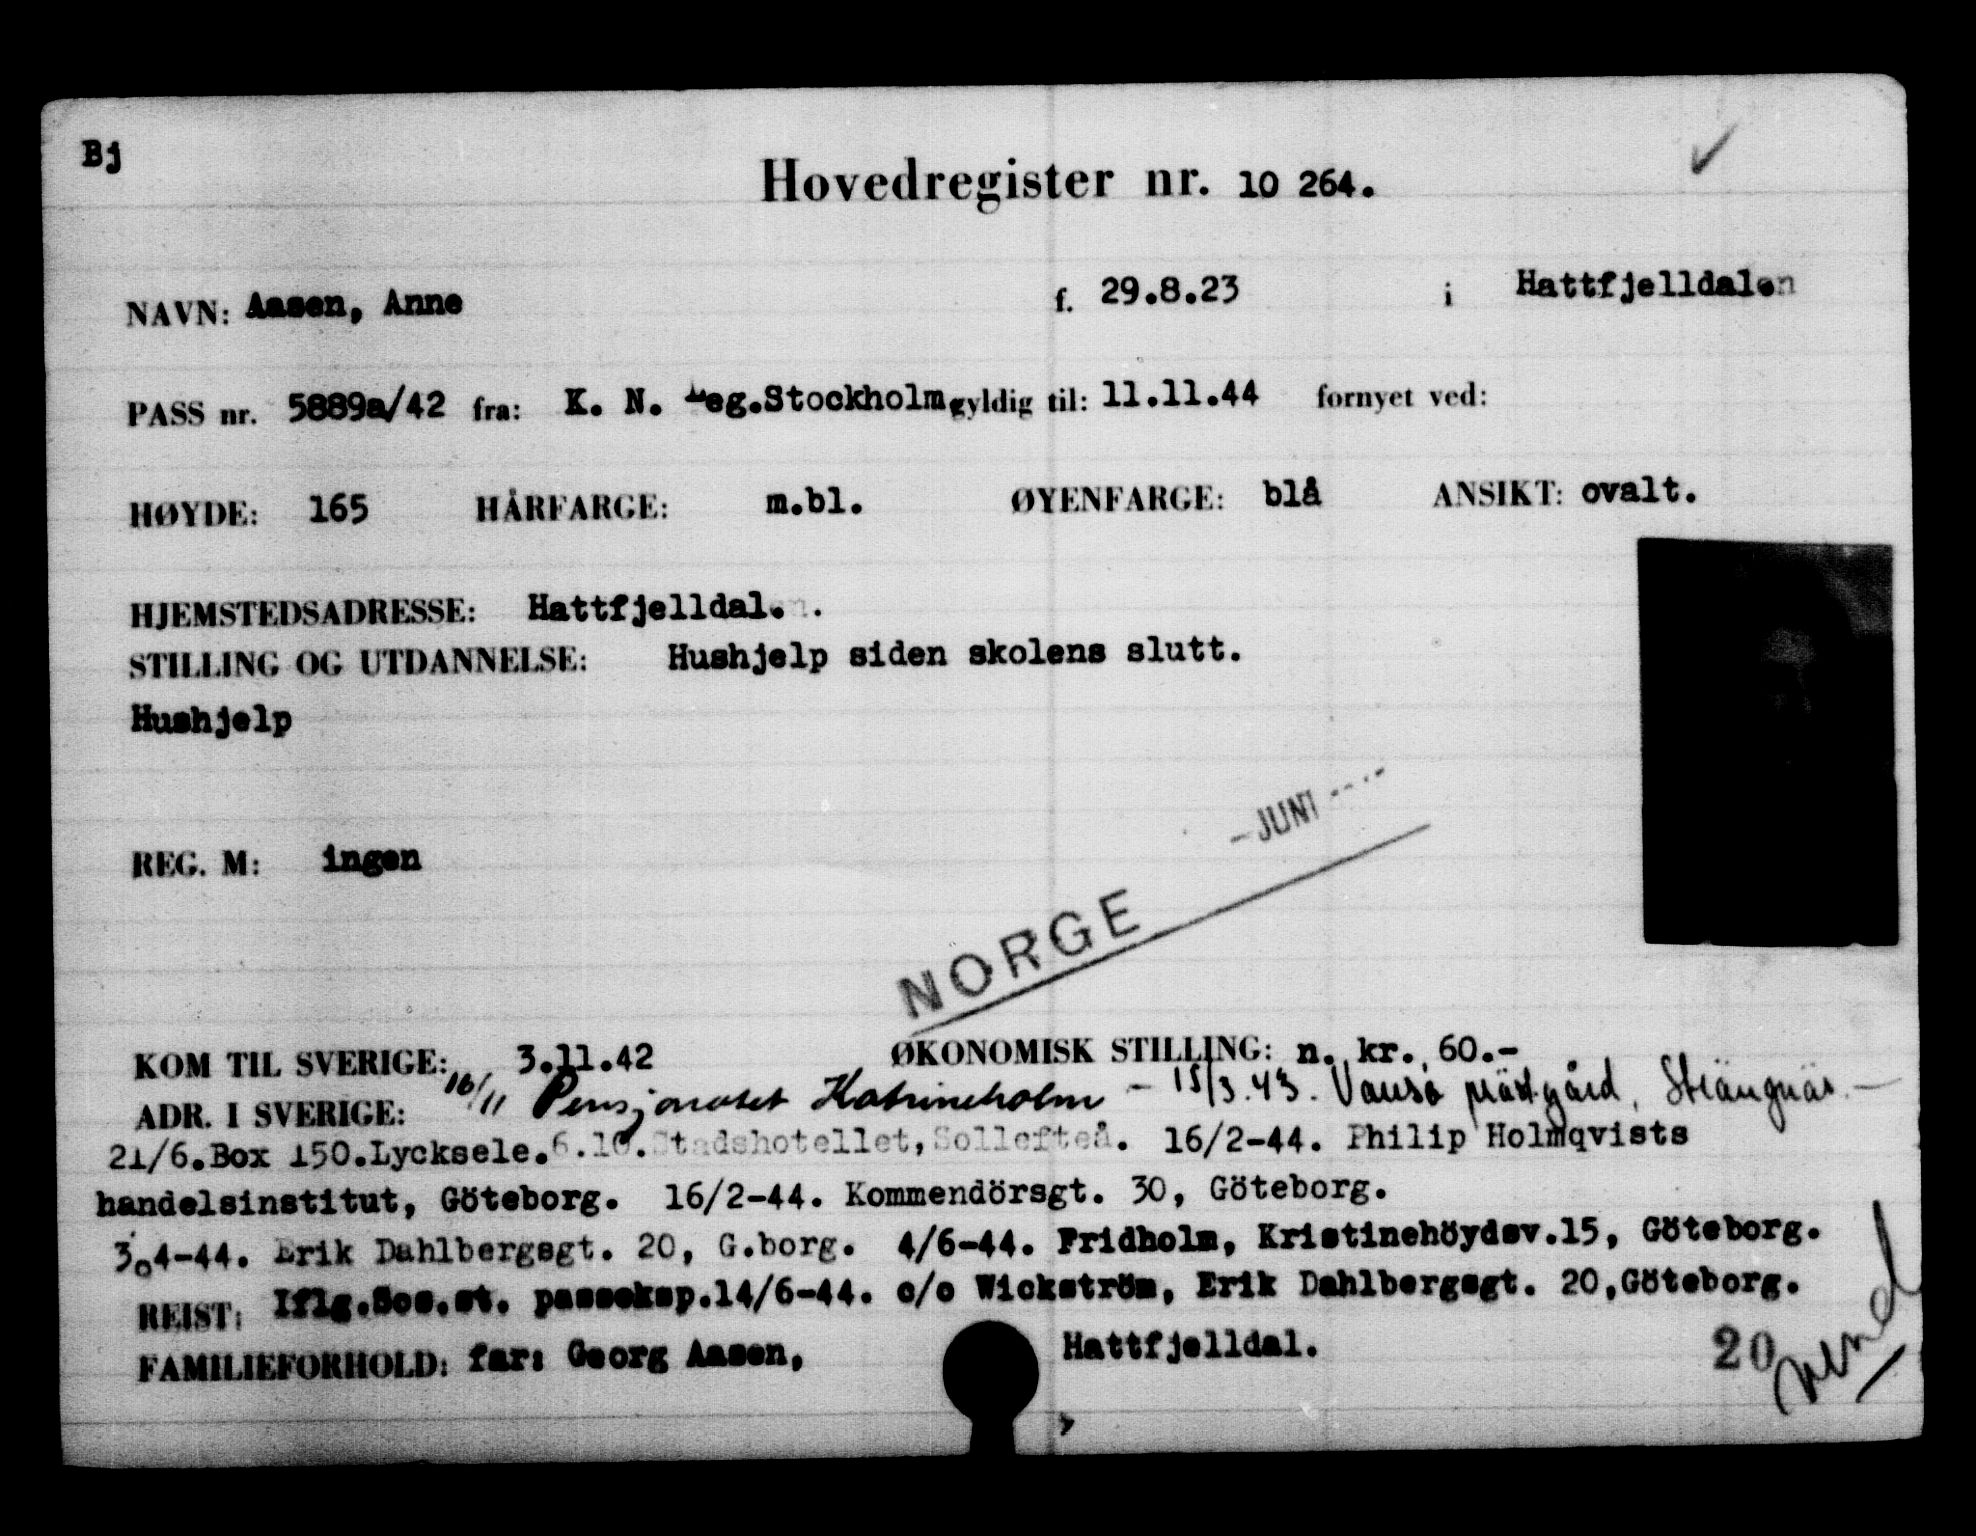 Bj
Hovedregister nr. 10 264.
NAVN: Aasen, Anne f. 29.8.23 i Hattfjelldalen
PASS nr. 5889a/42 fra: K. N. Leg.Stockholm gyldig til: 11.11.44 fornyet ved:
HØYDE: 165 HÅRFARGE: m.bl. ØYENFARGE: blå ANSIKT: ovalt.
HJEMSTEDSADRESSE: Hattfjelldal.
STILLING OG UTDANNELSE: Hushjelp siden skolens slutt.
Hushjelp
REG. M: ingen
- JUNI
NORGE
KOM TIL SVERIGE: 3.11.42 ØKONOMISK STILLING: n. kr. 60.-
ADR. I SVERIGE: 16/11 Pensjonatet Katrineholm - 15/3.43. Vansö prästgård, Strängnäs. -
21/6.Box 150.Lycksele. 6.10. Stadshotellet, Sollefteå. 16/2-44. Philip Holmqvists
handelsinstitut, Göteborg. 16/2-44. Kommendörsgt. 30, Göteborg.
3.4-44. Erik Dahlbergsgt. 20, G.borg. 4/6-44. Fridholm, Kristinehöydsv.15, Göteborg.
REIST: Iflg.Sos.st. passeksp.14/6-44. c/o Wickström, Erik Dahlbergsgt. 20,Göteborg.
FAMILIEFORHOLD: far: Georg Aasen, Hattfjelldal.
20